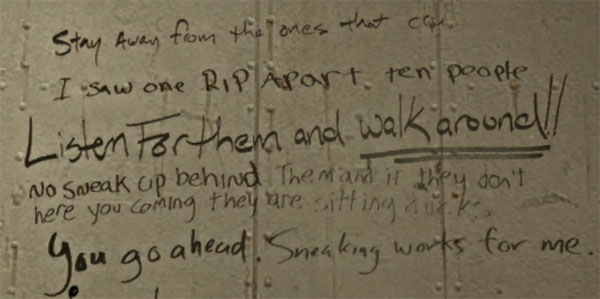 Stay Away from the ones that cry.
I saw one RIP Apart ten people
Listen For them and walk around!!
No sneak up behind Them and if they don't
here you coming they are sitting ducks
You go ahead. Sneaking works for me.